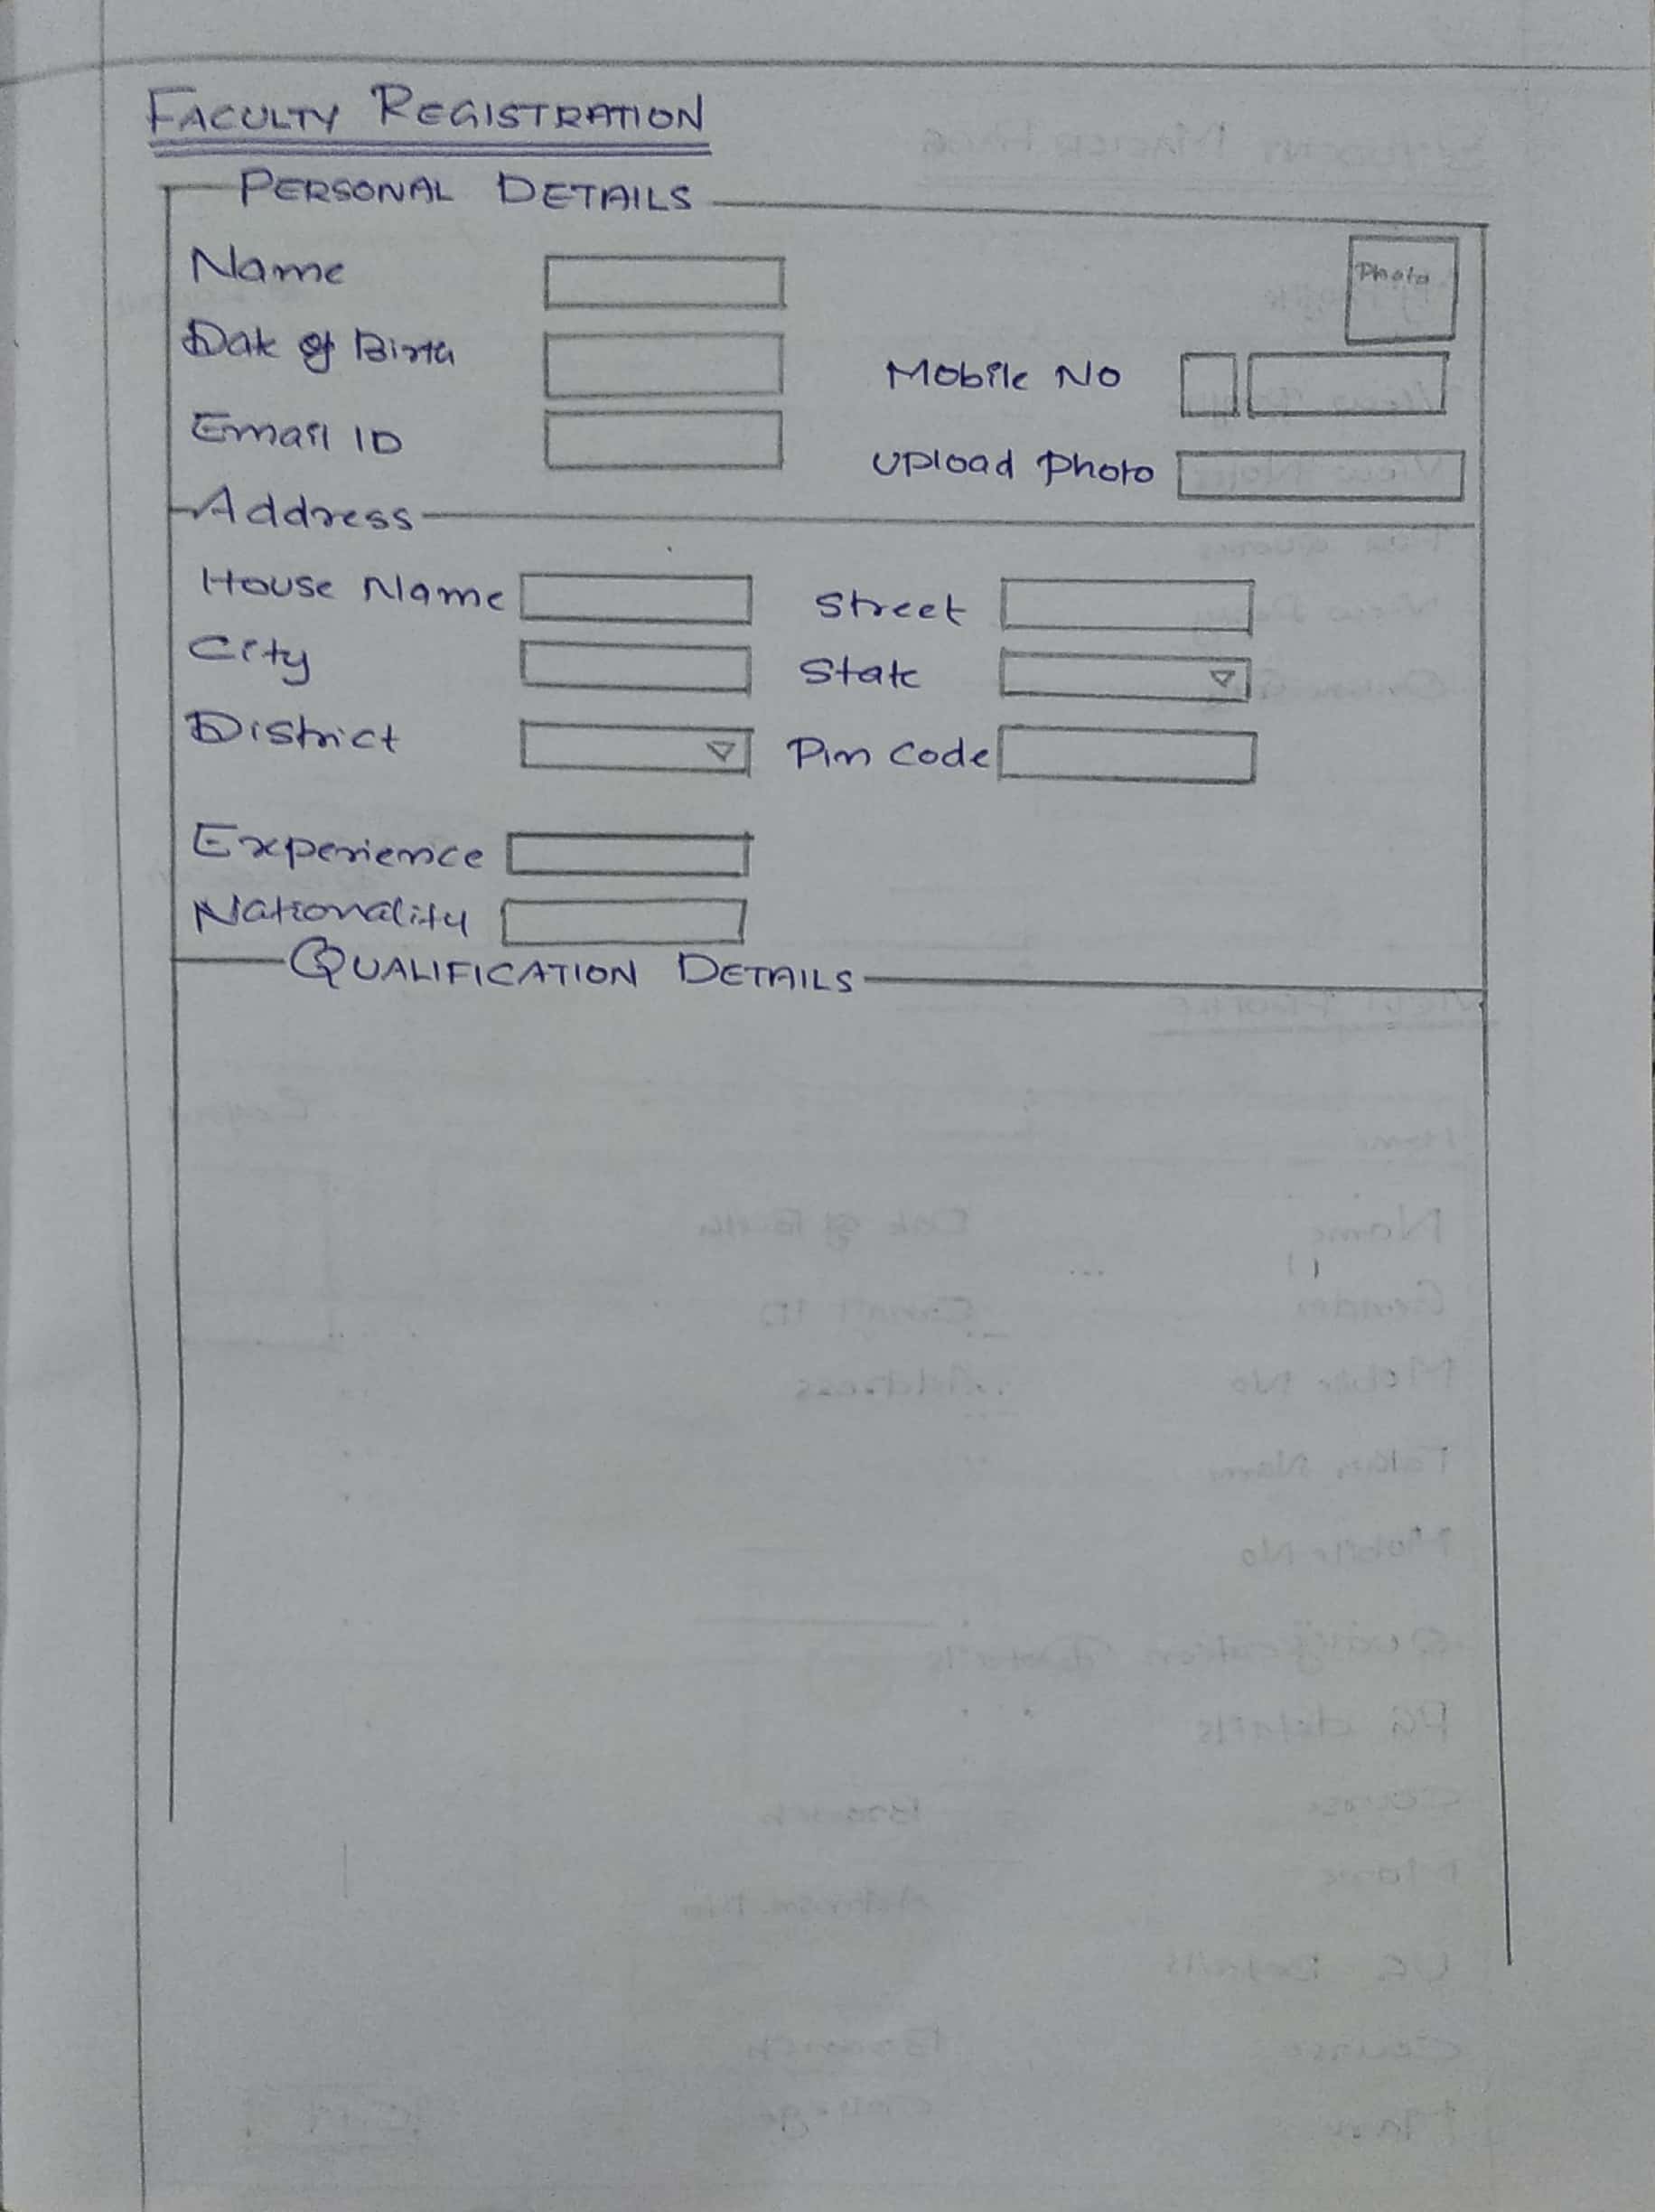 FACULTY REGISTRATION
PERSONAL DETAILS
Name
Photo
Date of Birth
Mobile No
Email ID
Upload Photo
Address
House Name Street
City State
District Pin Code
Experience
Nationality
QUALIFICATION DETAILS